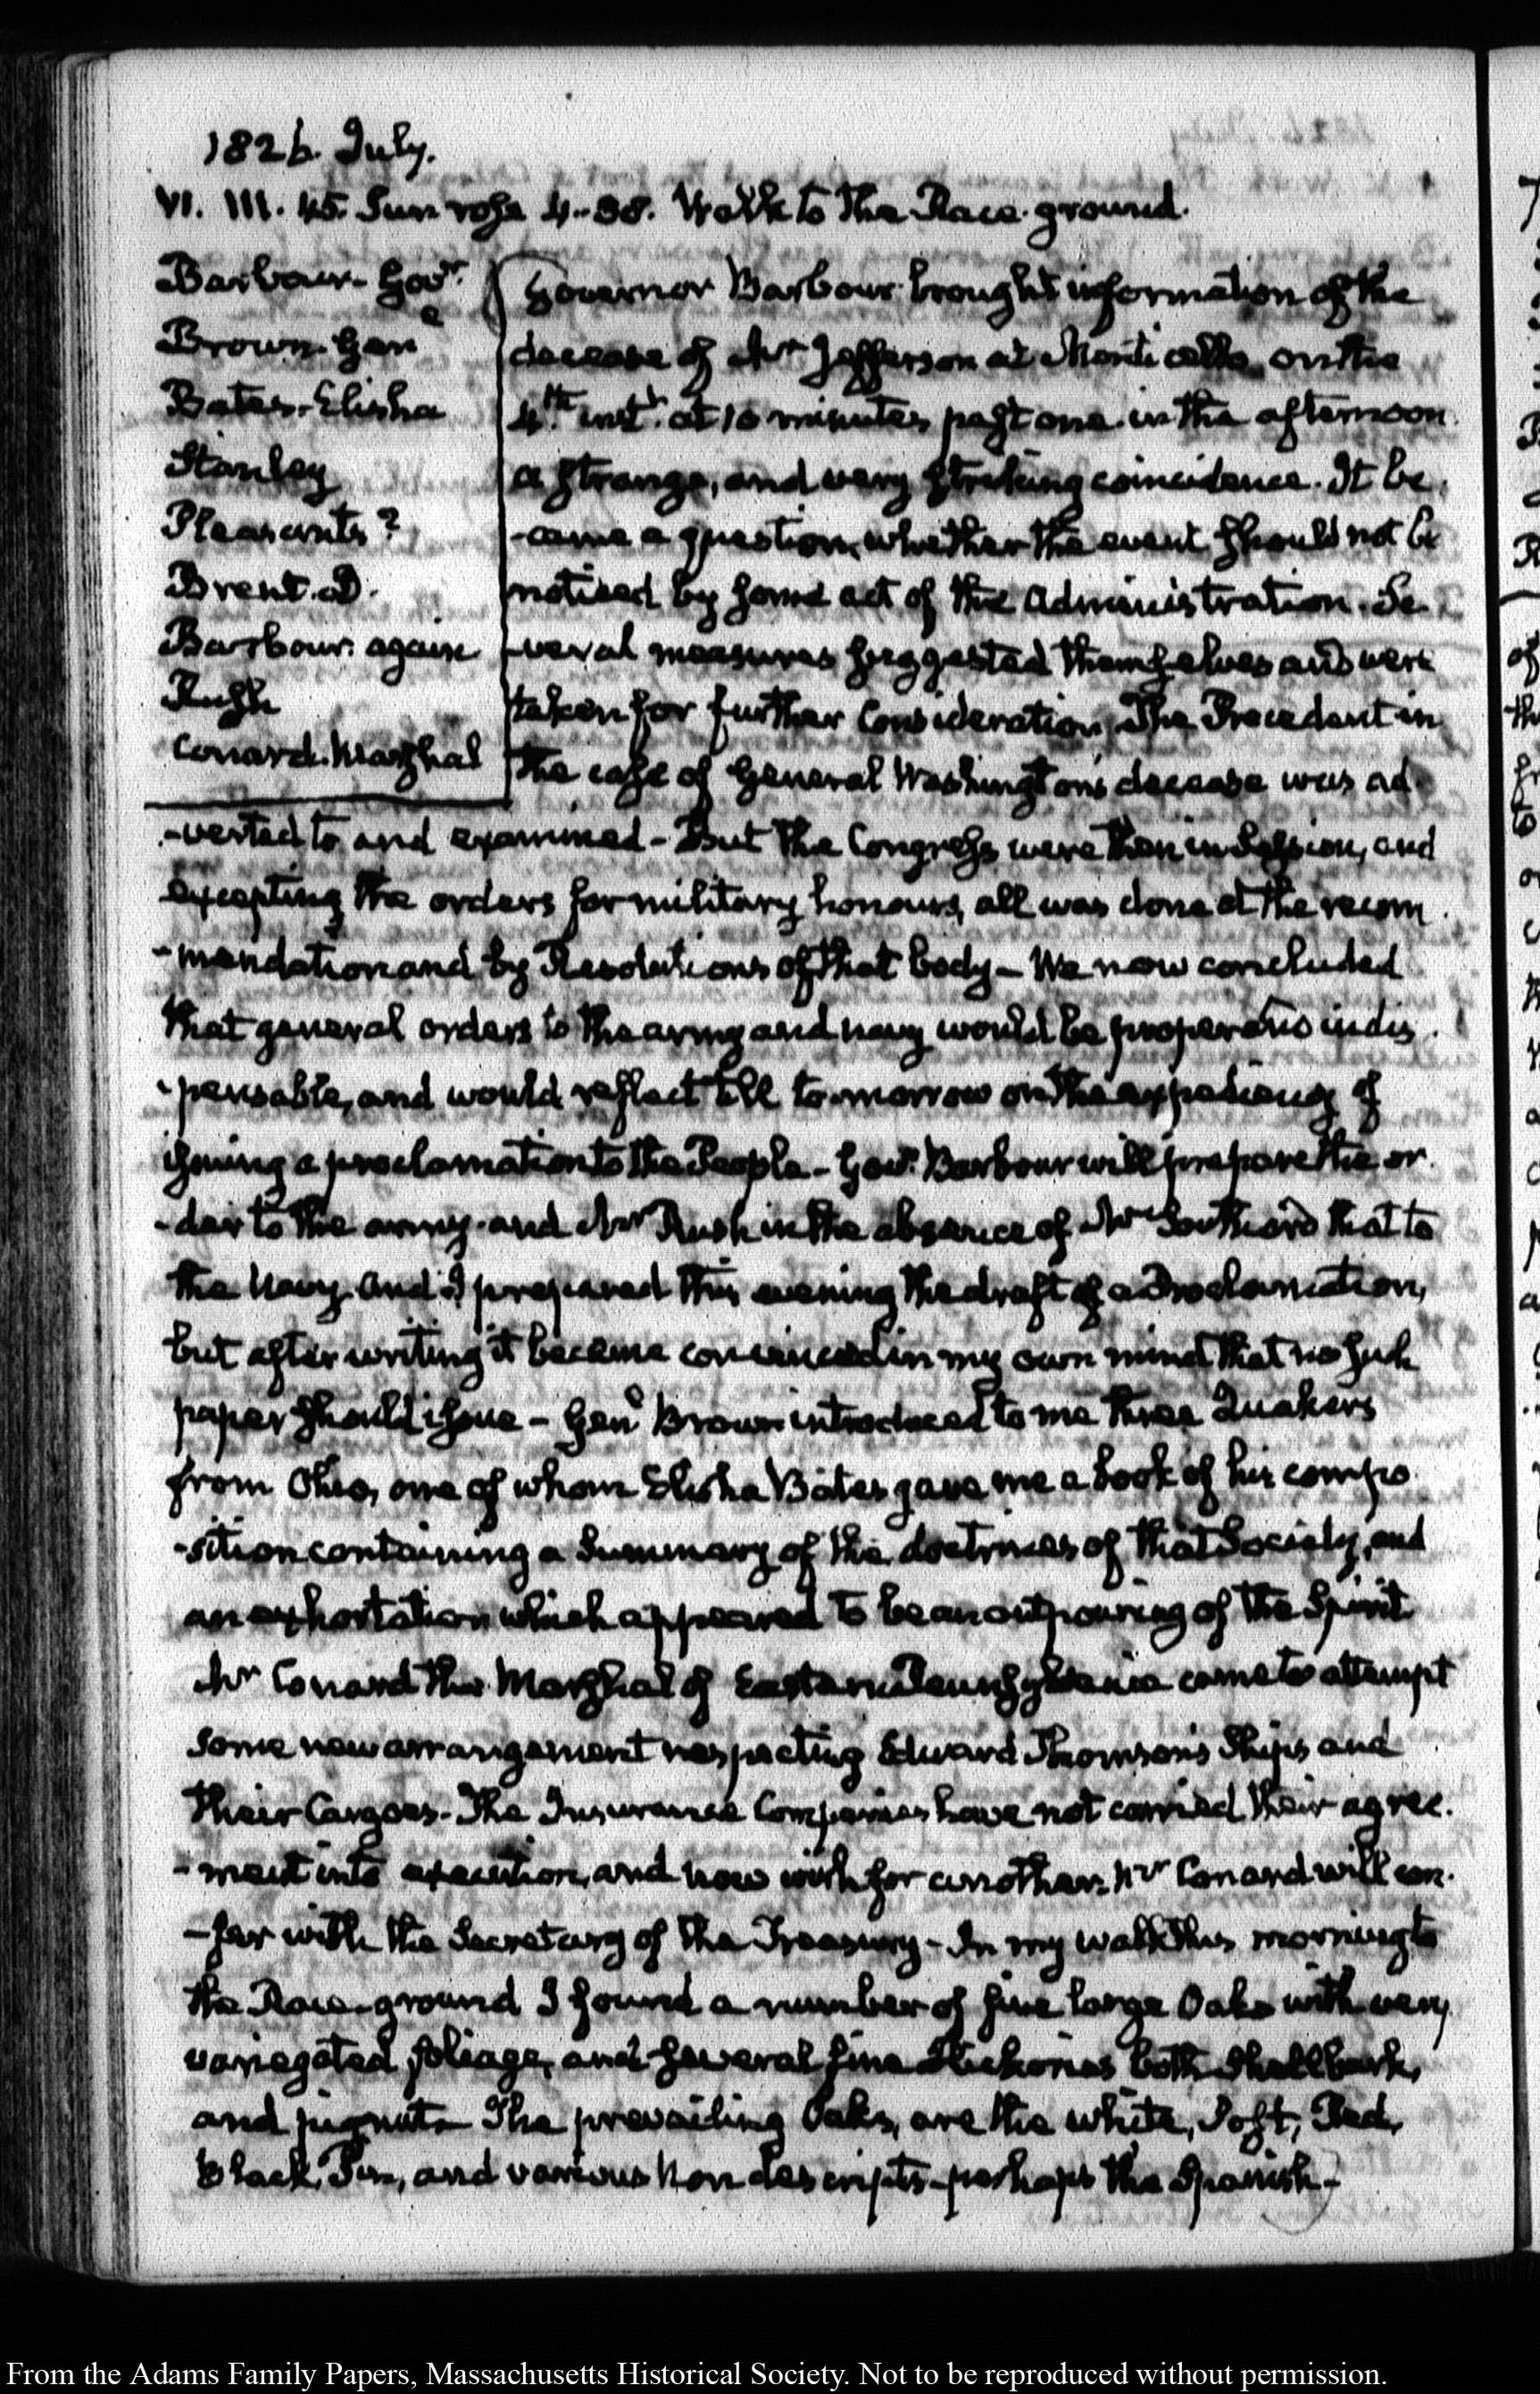 1826. July.
VI. III. 45. Sun rose 4-38. Walk to the Race-ground.
Barbour- Govr.
Brown- Genl
Bates- Elisha
Stanley
Pleasants?
Brent. D.
Barbour. again
Rush
Conard. Marshal
Governor Barbour brought information of the
decease of Mr Jefferson at Monticello, on the
4th. inst. at 10 minutes past one in the afternoon
a strange, and very striking coincidence. It be
-came a question, whether the event should not be
noticed by some act of the Administration. Se
-veral measures suggested themselves and were
taken for further Consideration. The Precedent in
the case of General Washington's decease was ad
-verted to and examined- But the Congress were then in Session, and
excepting the orders for military honours, all was done at the recom
-mendation and by Resolutions of that body- We now concluded
that general orders to the army and navy would be proper and indis
-pensable, and would reflect till to-morrow on the expediency of
issuing a proclamation to the People- Govr. Barbour will prepare the or
-der to the army- and Mr Rush in the absence of Mr Southard that to
the Navy. And I prepared this evening the draft of a Proclamation,
but after writing it became convinced in my own mind that no such
paper should issue- Genl Brown introduced to me three Quakers
from Ohio, one of whom Elisha Bates gave me a book of his compo
-sition containing a Summary of the doctrines of that Society, and
an exhortation which appeared to be an outpouring of the Spirit
Mr Conard the Marshal of Eastern Pennsylvania came to attempt
some new arrangement respecting Edward Thomson's Ships and
their Cargoes- The Insurance Companies have not carried their agree
-ment into execution, and now wish for another. Mr Conard will con
-fer with the Secretary of the Treasury- In my walk this morning to
the Race-ground I found a number of fine large Oaks with very
variegated foliage, and several fine Hickories both Shellbark,
and pignut- The prevailing Oaks, are the white, Post, Red,
Black, Pin, and various non descripts- perhaps the Spanish-
From the Adams Family Papers, Massachusetts Historical Society. Not to be reproduced without permission.